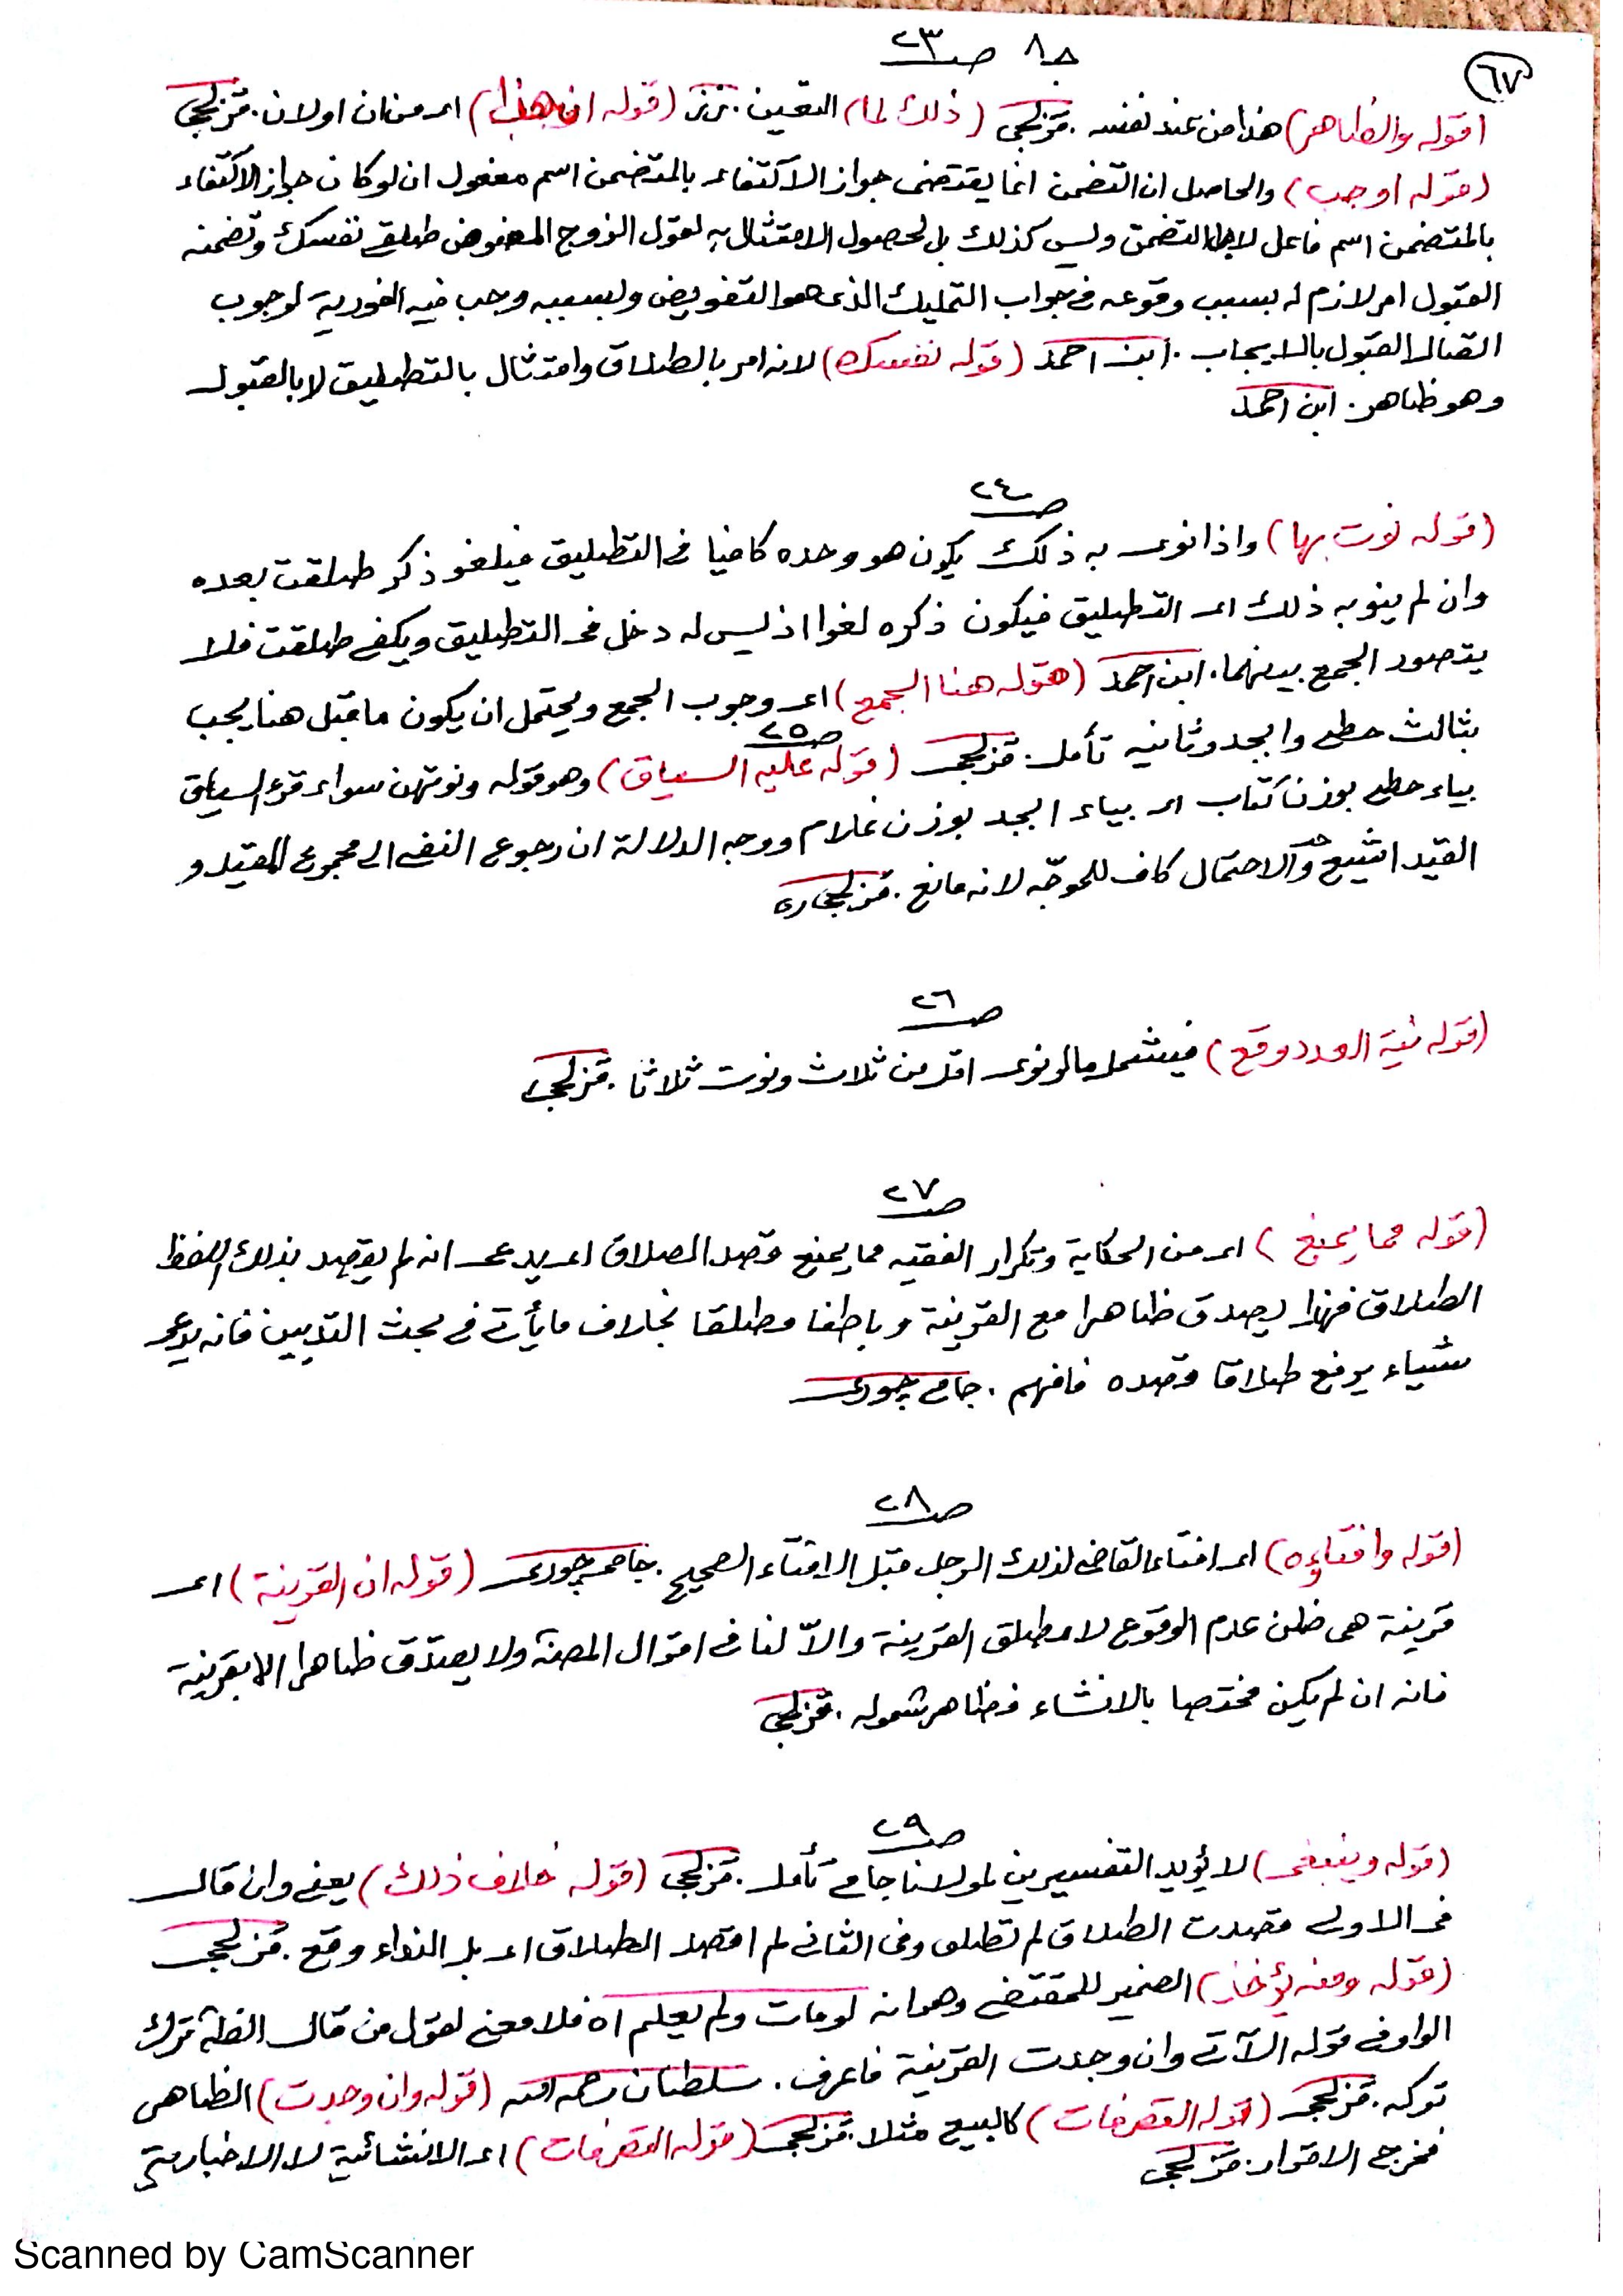 ٦٧
٨ ص ٢٣
(قوله والظاهر) هذا من عند نفسه . قزلجى (ذلك لها) التعيين . (قوله ان هذا) اى من ان اولان . قزلجى
(قوله اوجب) والحاصل ان التضمن انما يقتضى جواز الاكتفاء بالمتضمن اسم مفعول ان لو كان جواز الاكتفاء
بالمتضمن اسم فاعل لاجل التضمن وليس كذلك بل لحصول الامتثال به لقول الزوج المفوض طلقى نفسك وتضمنه
القبول امر لازم له بسبب وقوعه فى جواب التمليك الذى هو التفويض ولسببه وجب فيه الفورية لوجوب
اتصال القبول بالايجاب . ابن احمد (قوله نفسك) لانه امر بالطلاق وامتثال بالتطليق لا بالقبول
وهو ظاهر . ابن احمد
ص ٢٤
(قوله نوت بها) واذا نوى به ذلك يكون هو وحده كافيا فى التطليق فيلغو ذكر طلقت بعده
وان لم ينو به ذلك اى التطليق فيكون ذكره لغوا اذ ليس له دخل فى التطليق ويكفى طلقت فلا
يتصور الجمع بينهما . ابن احمد (قوله هنا الجمع) اى وجوب الجمع ويحتمل ان يكون ما قبل هنا يجب
بثالث حطى وابجد وثانيه تأمل . قزلجى
ص ٢٥
(قوله عليه السياق) وهو قوله ونوتهن سواء قرء السياق
بياء حطى بوزن كتاب او بباء ابجد بوزن غلام ووجه الدلالة ان رجوع النفى الى مجموع المقيد و
القيد اشيع والاحتمال كاف للموجّه لانه مانع . قزلجى ره
ص ٢٦
(قوله نية العدد وقع) فيشمل ما لو نوى اقل من ثلاث ونوت ثلاثا . قزلجى
ص ٢٧
(قوله مما يمنع) اى من الحكاية وتكرار الفقيه مما يمنع قصد الطلاق اى يدعى انه لم يقصد بذلك اللفظ
الطلاق فهذا يصدق ظاهرا مع القرينة وباطنا مطلقا بخلاف ما يأتى فى بحث التديين فانه يدعى
شيئاء يرفع طلاقا قصده فافهم . جامى چورى
ص ٢٨
(قوله وافتاؤه) اى افتاء القاضى لذلك الرجل قبل الافتاء الصحيح . جامى چورى (قوله ان القرينة) اى
قرينة هى ظن عدم الوقوع لا مطلق القرينة والاّ لنافى اقوال المصنف ولا يصدّق ظاهرا الا بقرينة
فانه ان لم يكن مختصا بالانشاء فظاهر شموله . قزلجى
ص ٢٩
(قوله وينبغى) لا يؤيد التفسيرين لمولانا جامى تأمل . قزلجى (قوله خلاف ذلك) يعنى وان قال
فى الاولى قصدت الطلاق لم تطلق وفى الثانى لم اقصد الطلاق اى بل النداء وقع . قزلجى
(قوله ومنه يؤخذ) الضمير للمقتضى وهو انه لو مات ولم يعلم اه فلا معنى لقول من قال الظ ترك
الواو فى قوله الآتى وان وجدت القرينة فاعرف . سلطان رحمه الله (قوله وان وجدت) الظاهر
تركه . قزلجى (قوله التصرفات) كالبيع مثلا . قزلجى (قوله التصرفات) اى الانشائية لا الاخبار حتى
فخرج الاقرار . قزلجى
Scanned by CamScanner